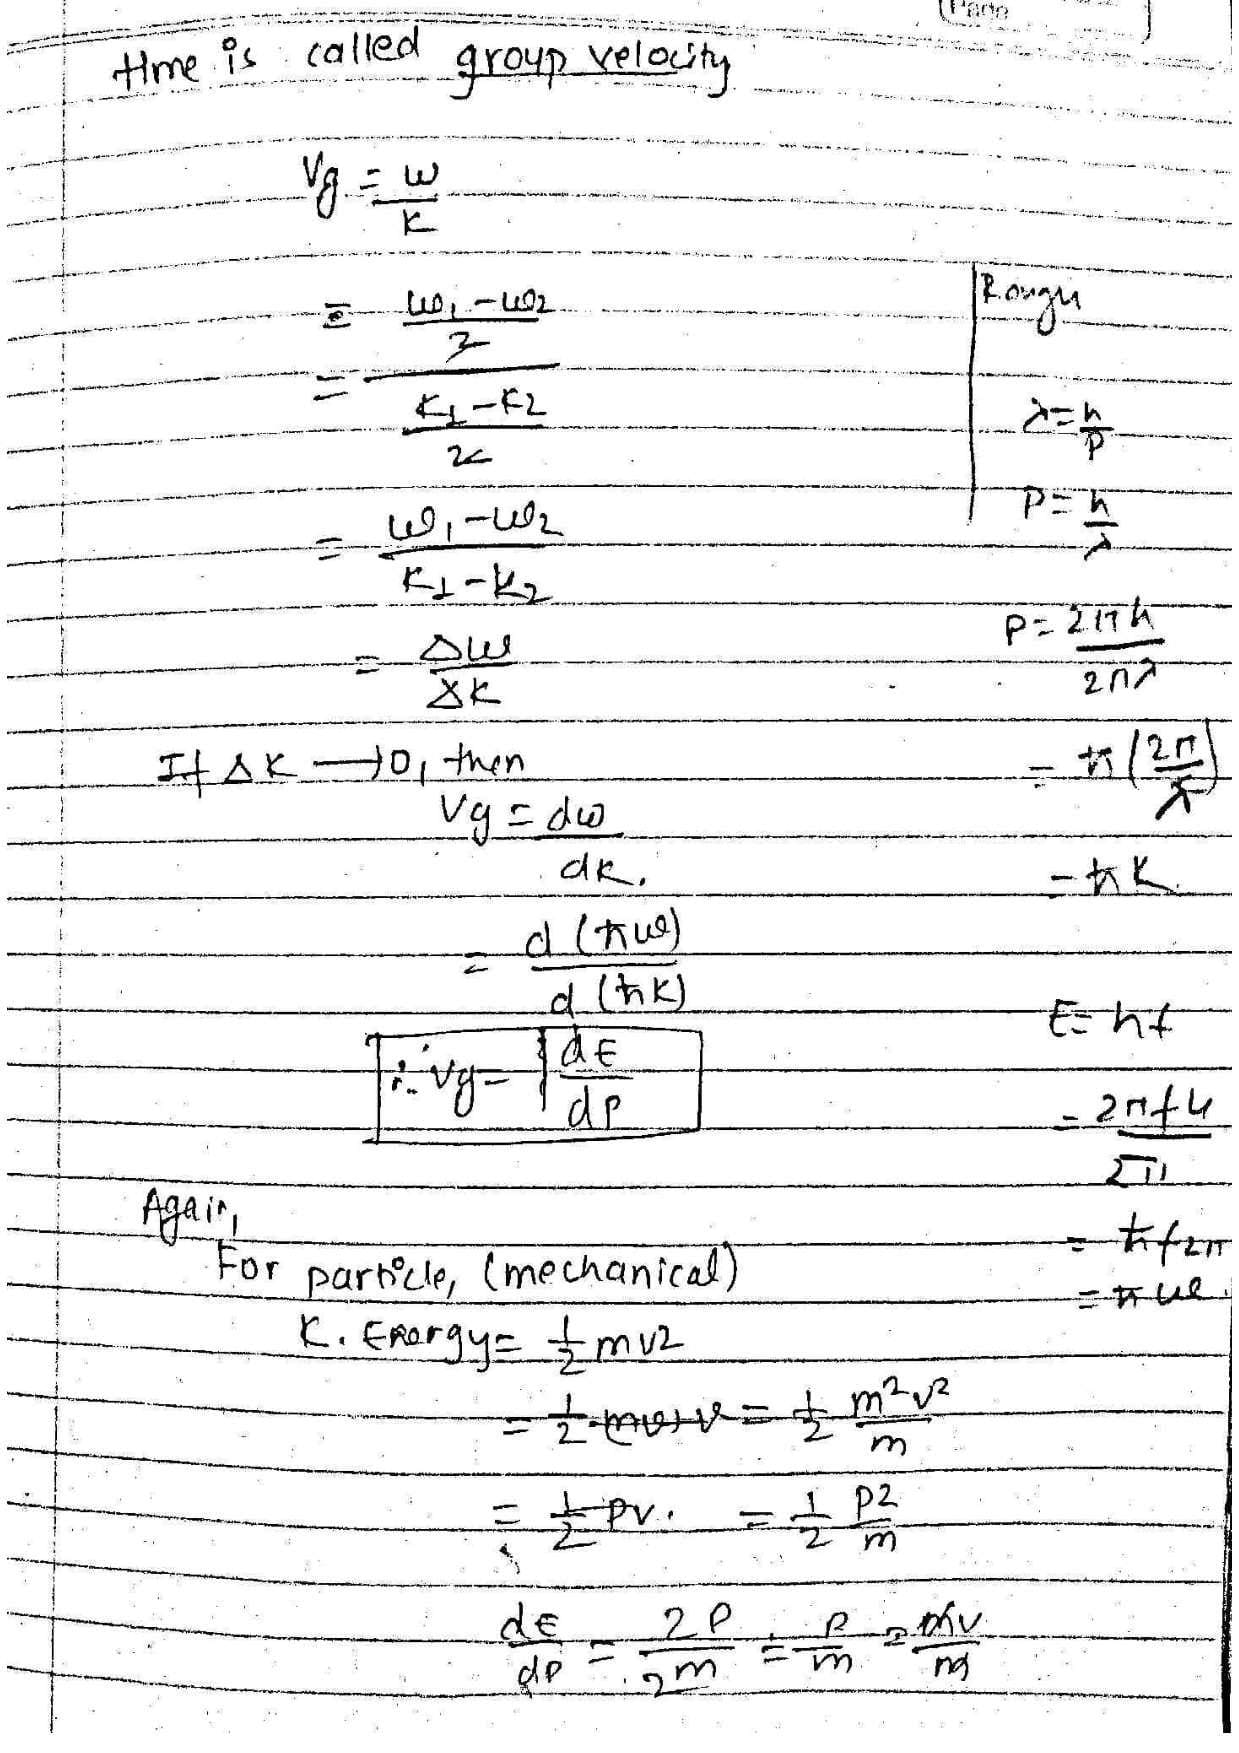 Page
time is called group velocity
Vg = ω/K
= (ω₁-ω₂)/2
= (K₁-K₂)/2
= (ω₁-ω₂)/(K₁-K₂)
= Δω/ΔK
If ΔK → 0, then
Vg = dω/dK.
= d(ħω)/d(ħK)
∴ Vg = dE/dP
Rough
λ = h/P
P = h/λ
P = 2πh/2πλ
= ħ(2π/λ)
= ħK
E = hf
= 2πfh/2π
= ħf2π
= ħω.
Again,
For particle, (mechanical)
K. Energy = ½mv2
= ½(mv)v = ½ m²v²/m
= ½PV. = ½ P2/m
dE/dP = 2P/2m = P/m = mv/m